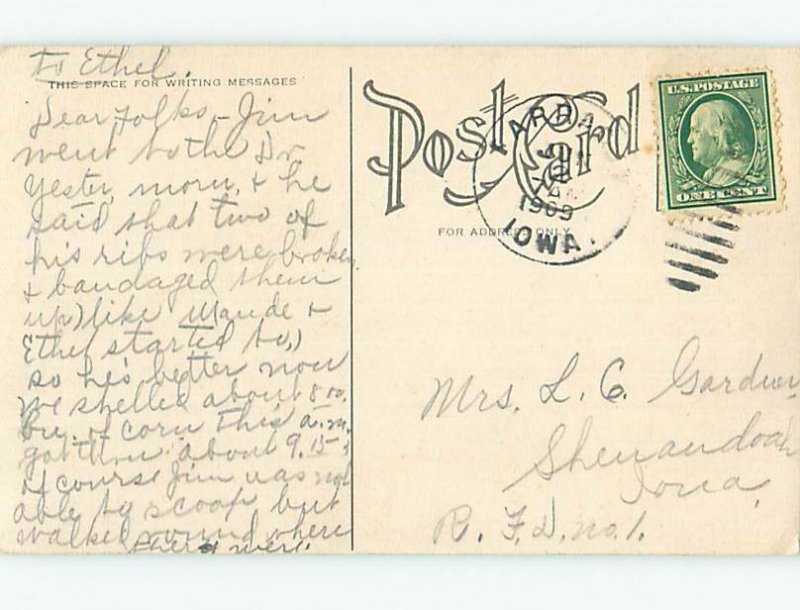 to Ethel.
THIS SPACE FOR WRITING MESSAGES
Dear Folks, - Jim
went to the Dr
Yester, morn, & he
said that two of
his ribs were broken
& bandaged them
up) like Maude &
Ethel started to,)
so he's better now
we shelled about 800
bu. of corn this a.m.
got thru about 9.15
of course Jim was not
able to scoop but
walked around where
they were.
Post Card
FOR ADDRESS ONLY
JAN
1909
IOWA.
U.S. POSTAGE
ONE CENT
Mrs. L. C. Gardner
Shenandoah
Iowa,
R. F. D. no. 1.